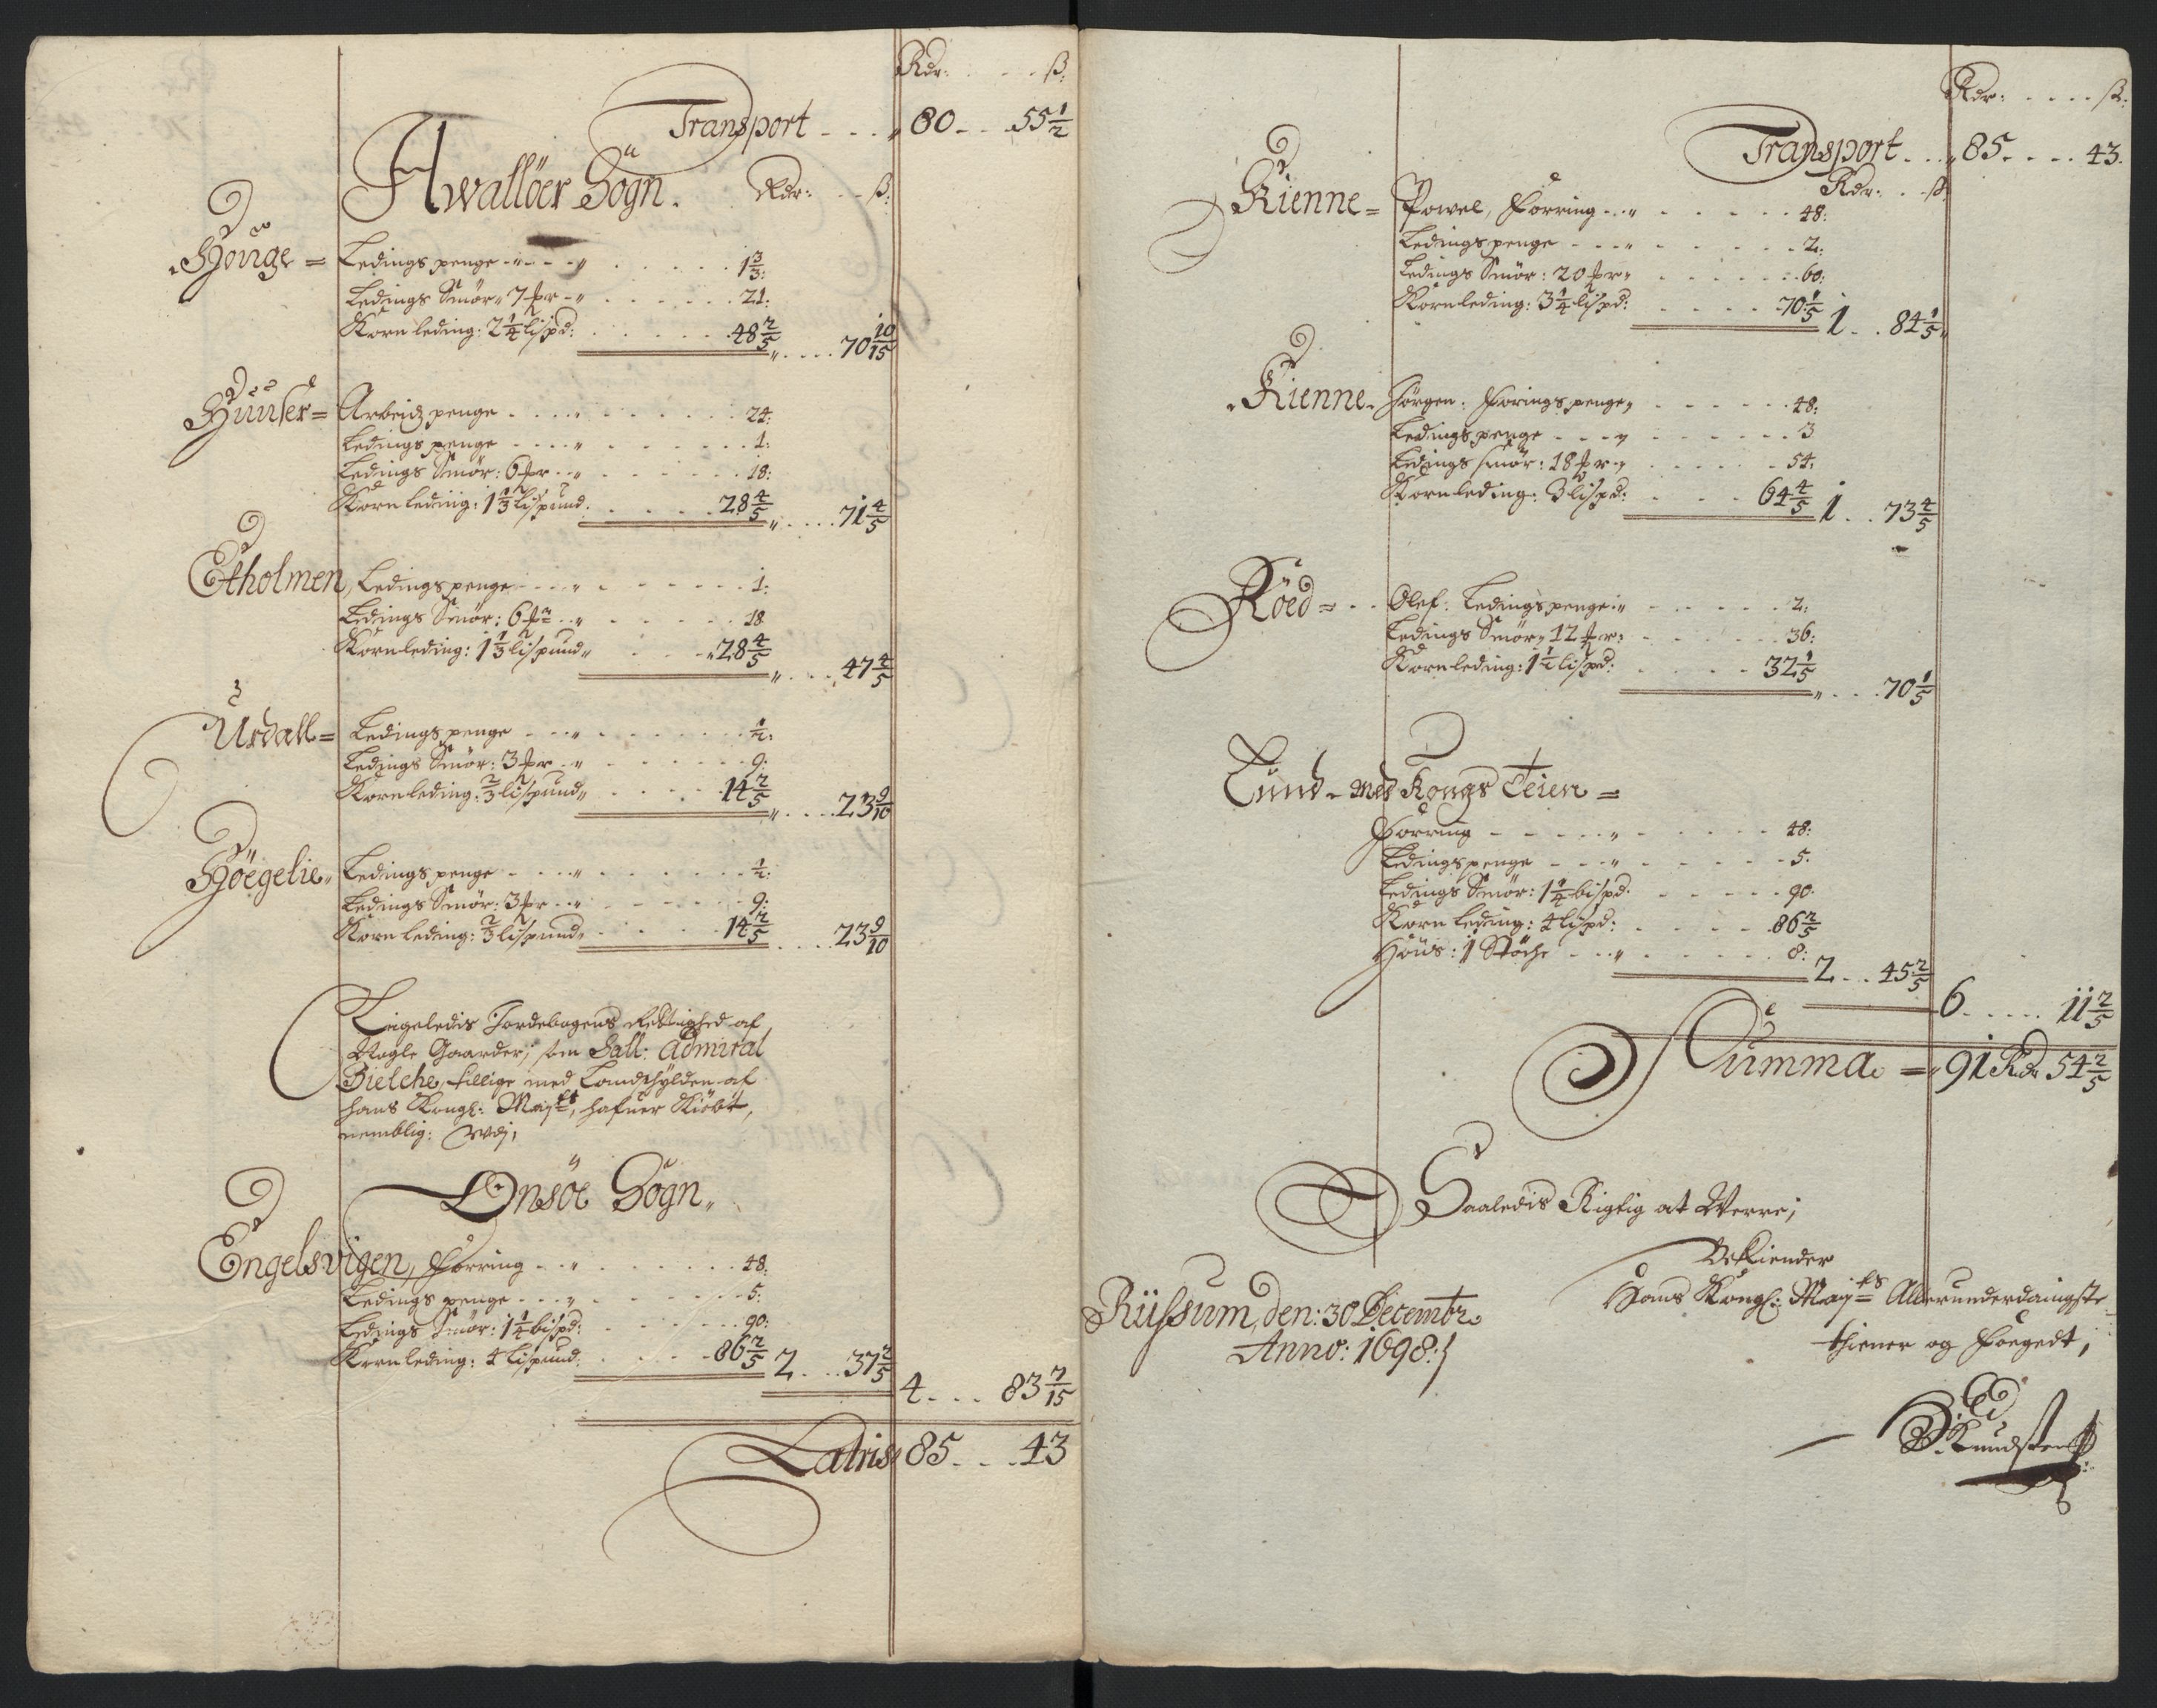 Rdr: . . . ß:
Transport . . . „ 80 . . 55 1/2
Hwallöer Sogn. Rdr: . . ß:
Houge = Ledings penge . . . „ . . . 1 3/3:
Ledings Smör „ 7 pr . „ . . . 21:
Korn leding: 2 1/4 lispd: . . . 48 2/5 „ . . . . 70 10/15
Huuser = Arbeidz penge . . . . „ . . . 24:
Ledings penge . . . . „ . . . 1:
Ledings Smör: 6 pr . . „ . . . 18:
Korn leding: 1 1/3 lispund . . . 28 4/5 „ . . . . 71 4/5
Etholmen, Ledings penge . . . „ . . . 1:
Ledings Smör: 6 pr . . „ . . . 18
Korn leding: 1 1/3 lispund „ . . . 28 4/5 „ . . . . 47 4/5
Urdall = Ledings penge . . . „ . . . 1/2:
Ledings Smör: 3 pr . . „ . . . 9:
Korn leding: 2/3 lispund „ . . . 14 2/5 „ . . . . 23 9/10
Höegelie „ Ledings penge . . . . „ . . . 1/2:
Ledings Smör: 3 pr . . „ . . . 9:
Korn leding: 2/3 lispund „ . . . 14 2/5 . . . . 23 9/10
Ligeledis Jordebogens Rettighed af
Nogle Gaarder, som Sall: Admiral
Bielche, tillige med Landschylden af
hans Kongl: Mayts, hafuer Kiöbt,
nemblig:
Onsöe Sogn „
Engelsvigen, Forring . . „ . . . 48:
Ledings penge . . . „ . . . 5:
Ledings Smör: 1 1/4 bispd: . . . 90:
Korn leding: 4 lispund: . . . 86 2/5 2 . . . 37 2/5
4 . . . 83 7/15
Latris 85 . . . 43
Rdr: . . . . ß:
Transport . . . „ 85 . . . . 43.
Rdr: . . ß
Kienne = Powel, Forring . . „ . . . 48:
Ledings penge . . . „ . . . 2:
Ledings Smör: 20 pr „ . . . 60:
Korn leding: 3 1/4 lispd: . . . 70 1/5 1 . . 84 1/5 „
Kienne „ Jörgen: Forings penge „ . . . 48:
Ledings penge . . . „ . . . 3
Ledings smör: 18 pr „ . . . 54:
Korn leding: 3 lispd: . . . 64 4/5 1 . . 73 4/5
Röed = . . Olef: Ledings penge: „ . . . 2:
Ledings Smör „ 12 pr: . . . 36:
Korn leding: 1 1/2 lispd: . . . 32 1/5 „ . . . 70 1/5
Lund „ med Kongs Teien =
Forring . . . . . „ . . . 48:
Ledings penge . . . „ . . . 5.
Ledings Smör: 1 1/4 bispd. . . . 90.
Korn leding: 4 lispd: . . . 86 2/5
Huus: 1 Støche . . . „ . . . 8: 2 . . . 45 2/5
6 . . . . . 11 2/5
Summa = „ 91 Rdr 54 2/5
Saaledis Rigtig at Verre,
Bekiender
Hans Kongl: Mayts Allerunderdanigste
thiener og Foegedt,
Rüssum, den: 30 Decembr
Anno: 1698:
Knudsten